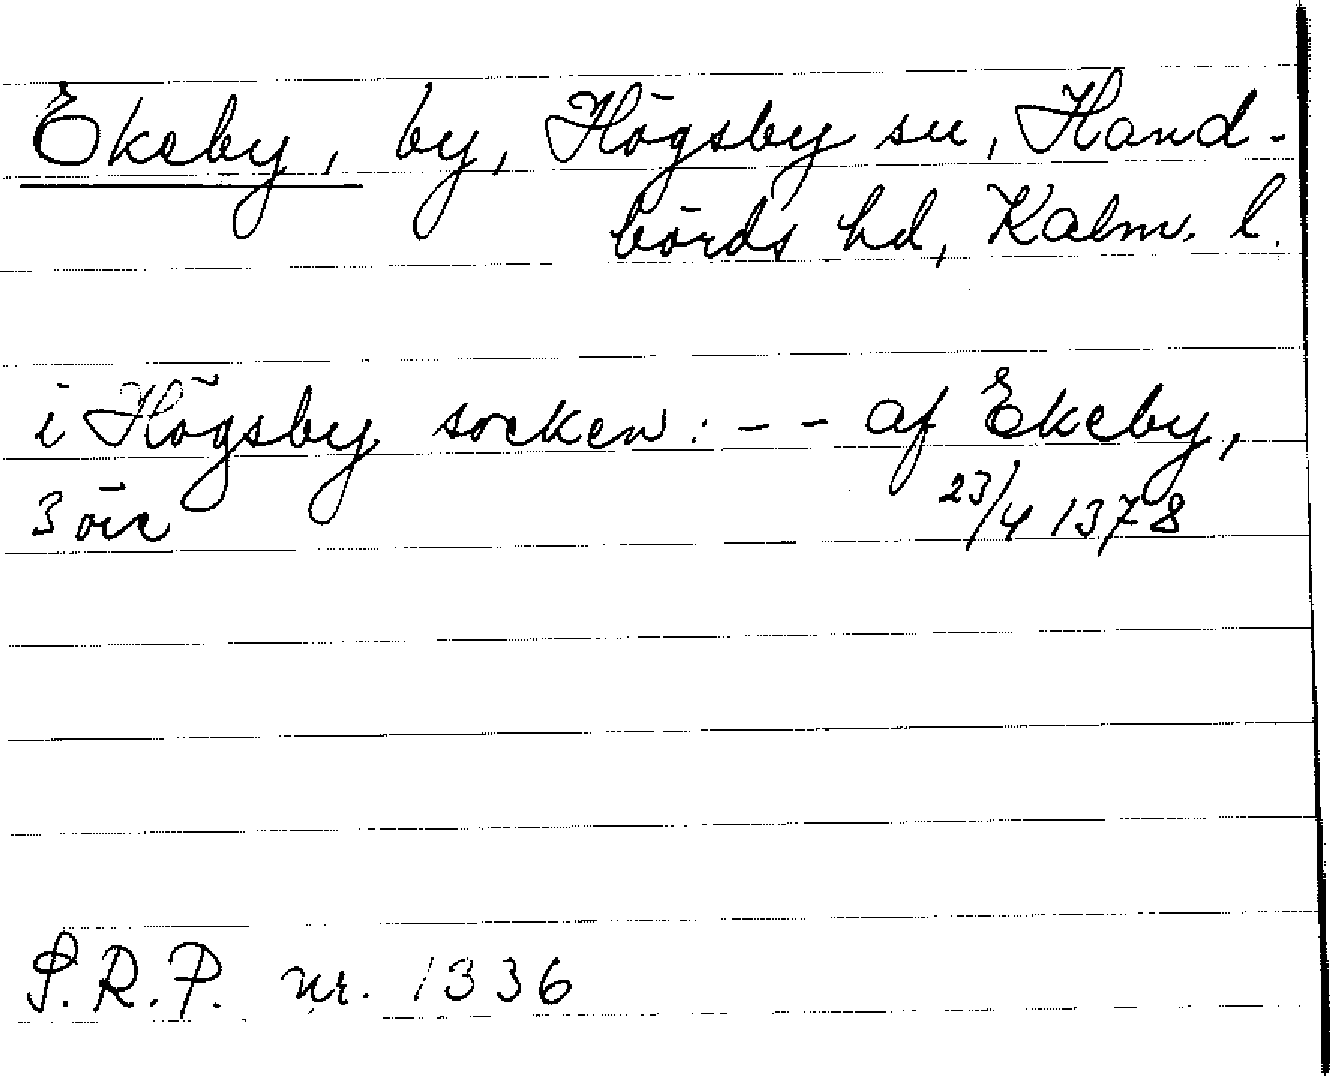 Ekeby, by, Högsby sn, Hand-
börds hd, Kalm. l.
i Högsby socken: - - af Ekeby,
3 öre 23/4 1378
S.R.P. nr. 1336